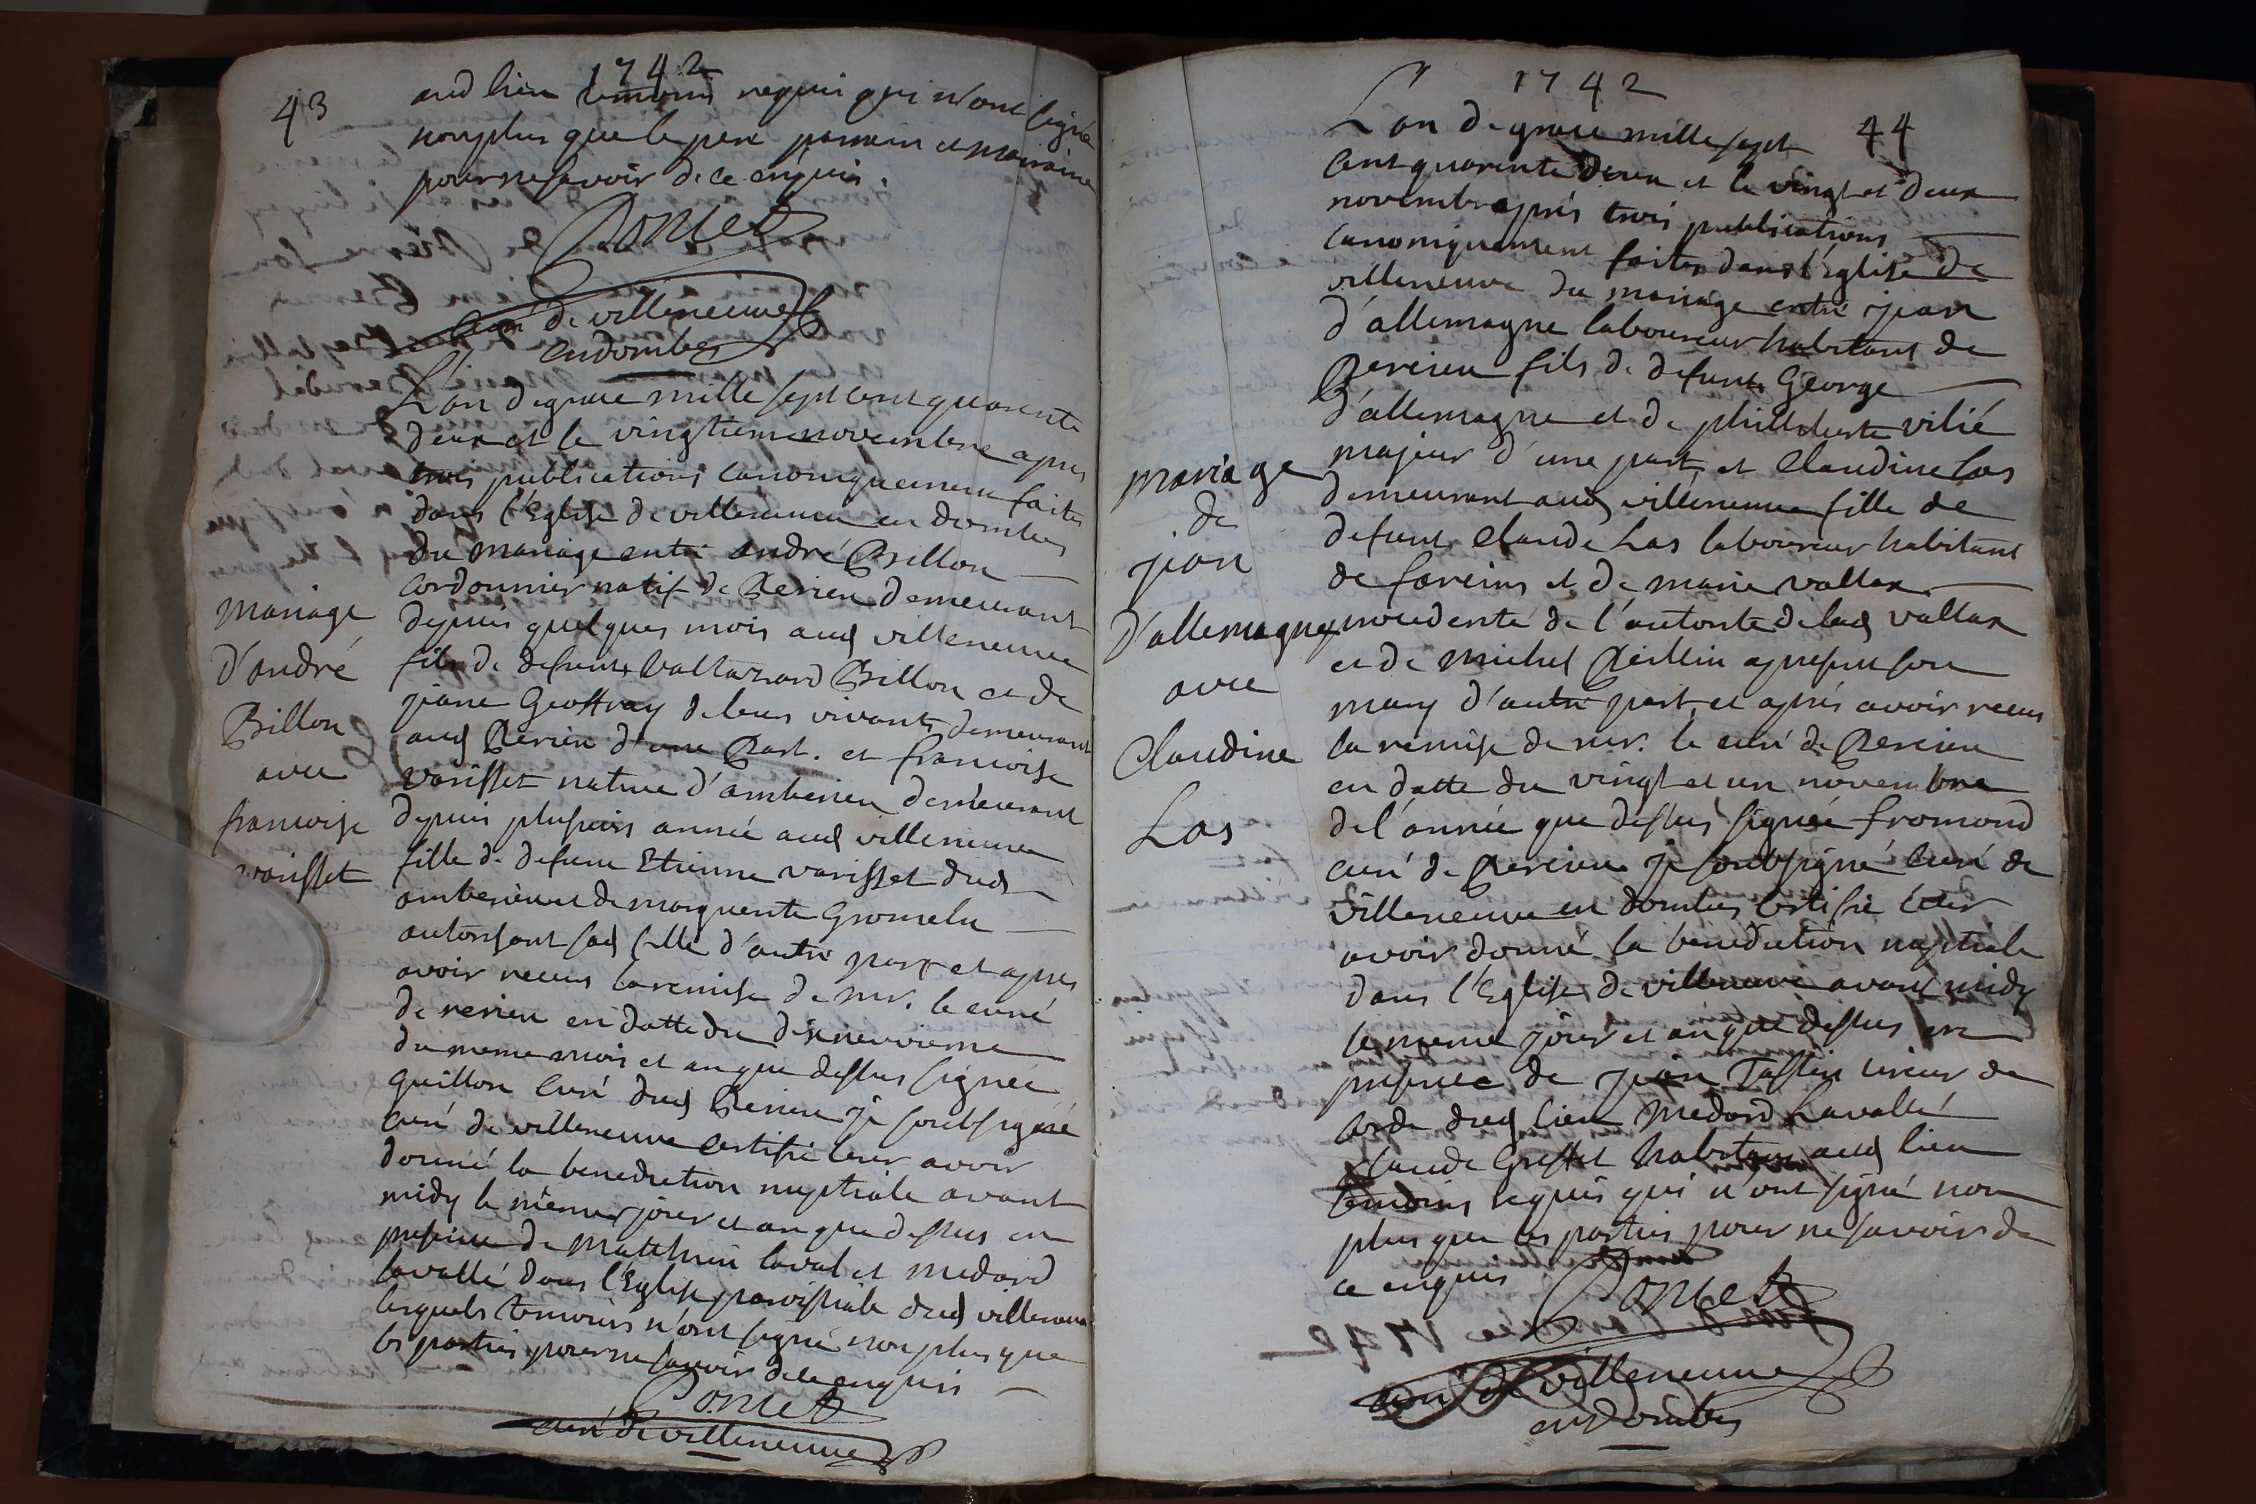 1742
43
aud lieu temoins requis qui n'ont signé
non plus que le pere parrain et marraine
pour ne savoir de ce enquis.
Poncet
curé de villeneuve
en dombes
L'an de grace mille sept cent quarente
deux et le vingtieme novembre apres
trois publications canoniquement faites
dans l'Eglise de villeneuve en dombes
du mariage entre andré Billon
cordonnier natif de Rerieu demeurant
depuis quelques mois aud villeneuve
fils de defunt baltazard Billon et de
jeane Geoffray de leurs vivants demeurant
aud Rerieu d'une Part. et francoise
varisset native d'amberieu demeurant
depuis plusieurs année aud villeneuve
fille de defunt Etienne varisset dud
amberieu et de marguerite Gromelu
autorisant sad fille d'autre part et apres
avoir receus la remise de mr. le curé
de rerieu en datte du dixneuvieme
du meme mois et an que dessus signée
guillon curé dud Rerieu je soubsigné
curé de villeneuve certifie leur avoir
donné la benediction nuptiale avant
midy le même jour et an que dessus en
presence de Matthieu laval et medard
lavallé dans l'Eglise paroissiale dud villeneuve
lesquels temoins n'ont signé non plus que
les parties pour ne savoir de ce enquis
Poncet
curé de villeneuve
mariage
d'andré
Billon
avec
francoise
varisset
1742
44
L'an de grace mille sept
cent quarente deux et le vingt et deux
novembre aprés trois publications
canoniquement faites dans l'église de
villeneuve du mariage entre jean
d'allemagne laboureur habitant de
Percieu fils de defunt George
d'allemagne et de vilié
majeur d'une part, et Claudine Las
demeurant aud villeneuve fille de
defunt Claude Las laboureur habitant
de fareins et de marie vallax
procedente de l'autorite de lad vallax
et de michel a present son
mary d'autre part, et aprés avoir receus
la remise de mr. le curé de Percieu
en datte du vingt et un novembre
de l'année que dessus signée fromond
curé de Percieu je soubsigné curé de
villeneuve en dombes certifie leur
avoir donné la benediction nuptiale
dans l'Eglise de villeneuve avant midy
le meme jour et an que dessus en
presence de jean Tassin tireur de
corde dud lieu Medard Lavallé
Claude habitans aud lieu
temoins requis qui n'ont signé non
plus que les parties pour ne savoir de
ce enquis
Poncet
curé de villeneuve
en dombes
mariage
de
jean
D'allemagne
avec
Claudine
Las